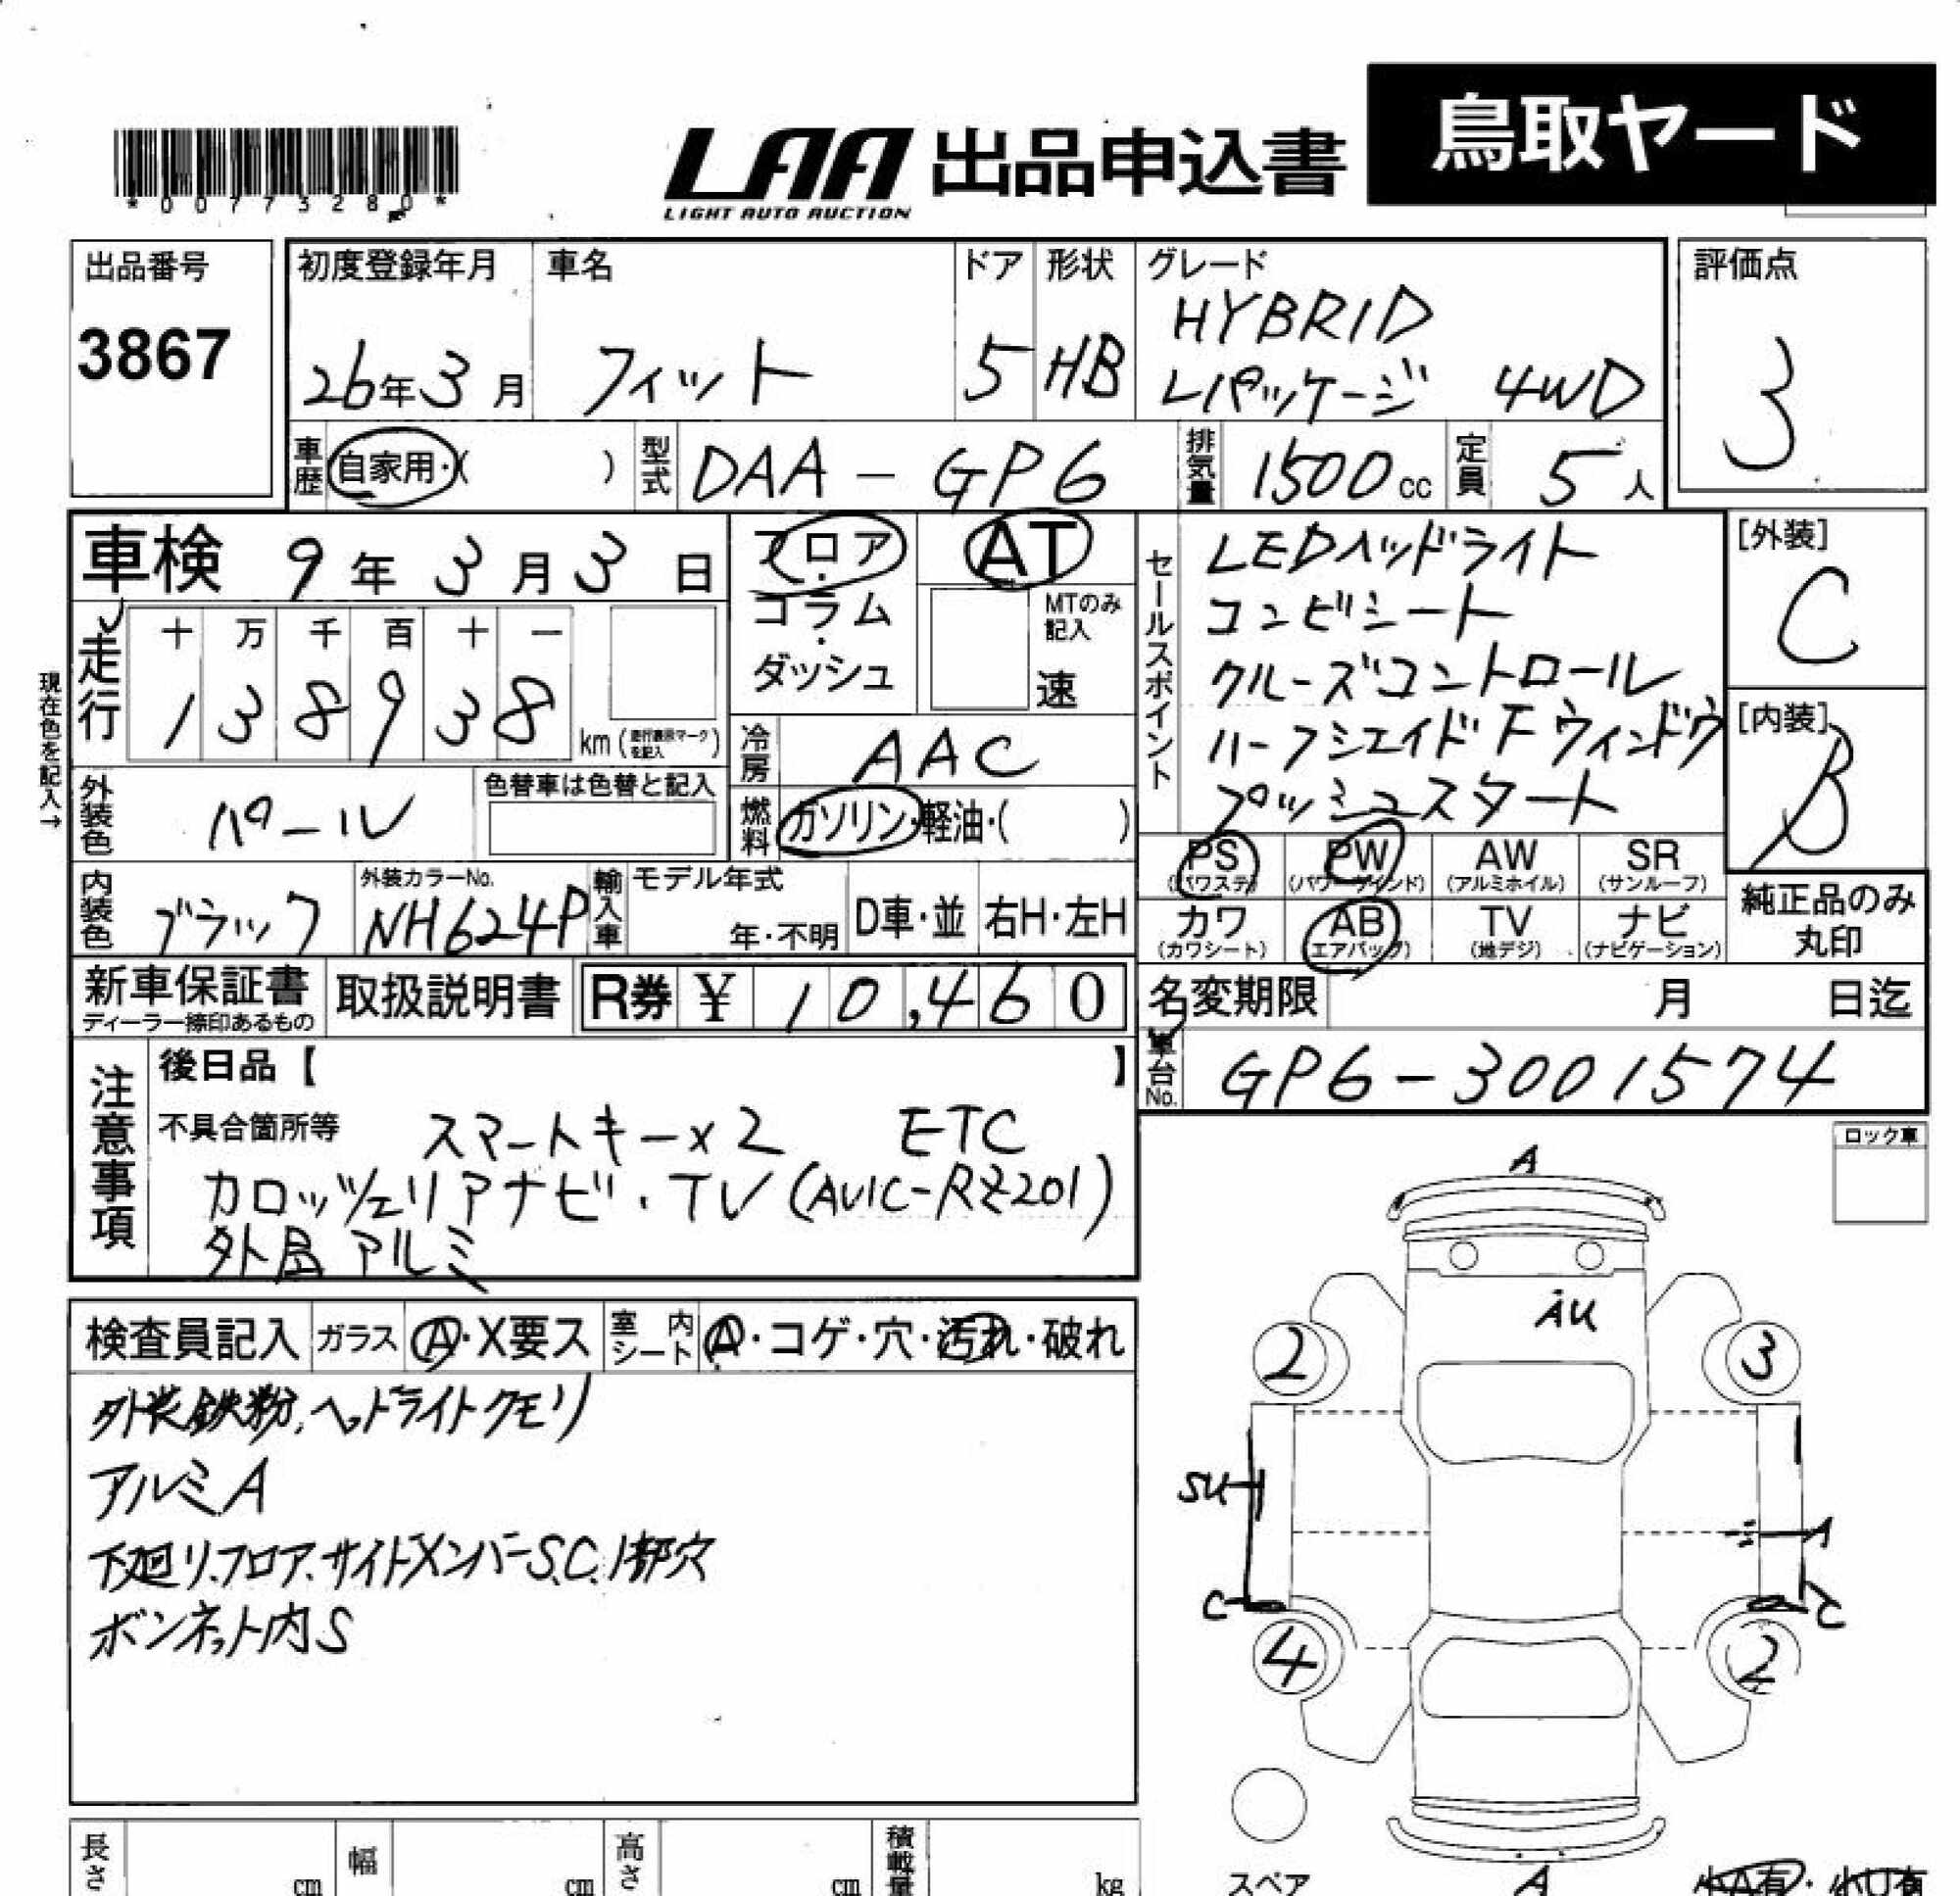 鳥取ヤード
*00773280*
LAA 出品申込書
LIGHT AUTO AUCTION
出品番号
3867
初度登録年月
26年3月
車名
フィット
ドア
5
形状
HB
グレード
HYBRID
Lパッケージ 4WD
評価点
3
車歴 自家用・( )
型式 DAA-GP6
排気量 1500cc
定員 5人
車検 9年3月3日
フロア・コラム・ダッシュ
AT
MTのみ記入
速
セールスポイント
LEDヘッドライト
コンビシート
クルーズコントロール
ハーフシェイドFウィンドウ
プッシュスタート
[外装]
C
[内装]
B
現在色を記入→
走行
十 万 千 百 十 一
1 3 8 9 3 8
km
冷房 AAC
燃料 ガソリン・軽油・( )
外装色 パール
色替車は色替と記入
内装色 ブラック
外装カラーNo.
NH624P
輸入車
モデル年式
年・不明
D車・並
右H・左H
PS(パワステ) PW(パワーウインド) AW(アルミホイル) SR(サンルーフ)
カワ(カワシート) AB(エアバック) TV(地デジ) ナビ(ナビゲーション)
純正品のみ
丸印
新車保証書
ディーラー捺印あるもの
取扱説明書
R券 ¥ 10,460
名変期限 月 日迄
車台No. GP6-3001574
注意事項
後日品【 】
不具合箇所等 スマートキー×2 ETC
カロッツェリアナビ・TV(AVIC-RZ201)
外品アルミ
ロック車
検査員記入 ガラス A・X要ス 室内シート A・コゲ・穴・汚れ・破れ
外装鉄粉、ヘッドライトクモリ
アルミA
下廻り、フロア、サイドメンバーS.C.1部穴
ボンネット内S
A
AU
2
3
SU
A
C
C
4
2
スペア
A
長さ cm 幅 cm 高さ cm 積載量 kg